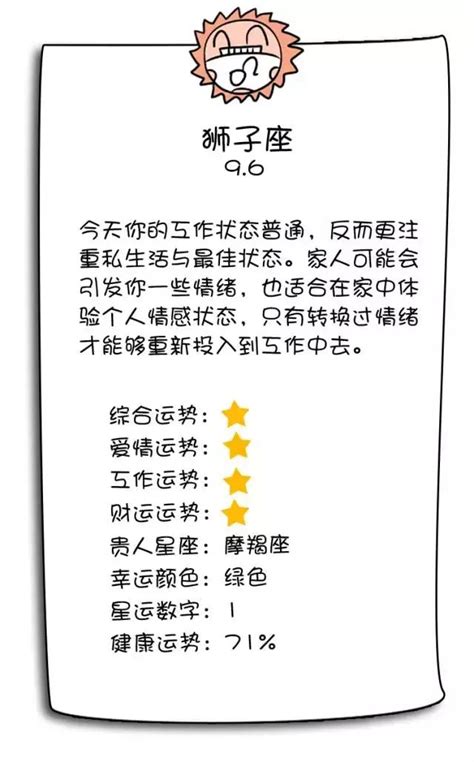 狮子座
9.6
今天你的工作状态普通，反而更注
重私生活与最佳状态。家人可能会
引发你一些情绪，也适合在家中体
验个人情感状态，只有转换过情绪
才能够重新投入到工作中去。
综合运势：⭐
爱情运势：⭐
工作运势：⭐
财运运势：⭐
贵人星座：摩羯座
幸运颜色：绿色
星运数字：1
健康运势：71%